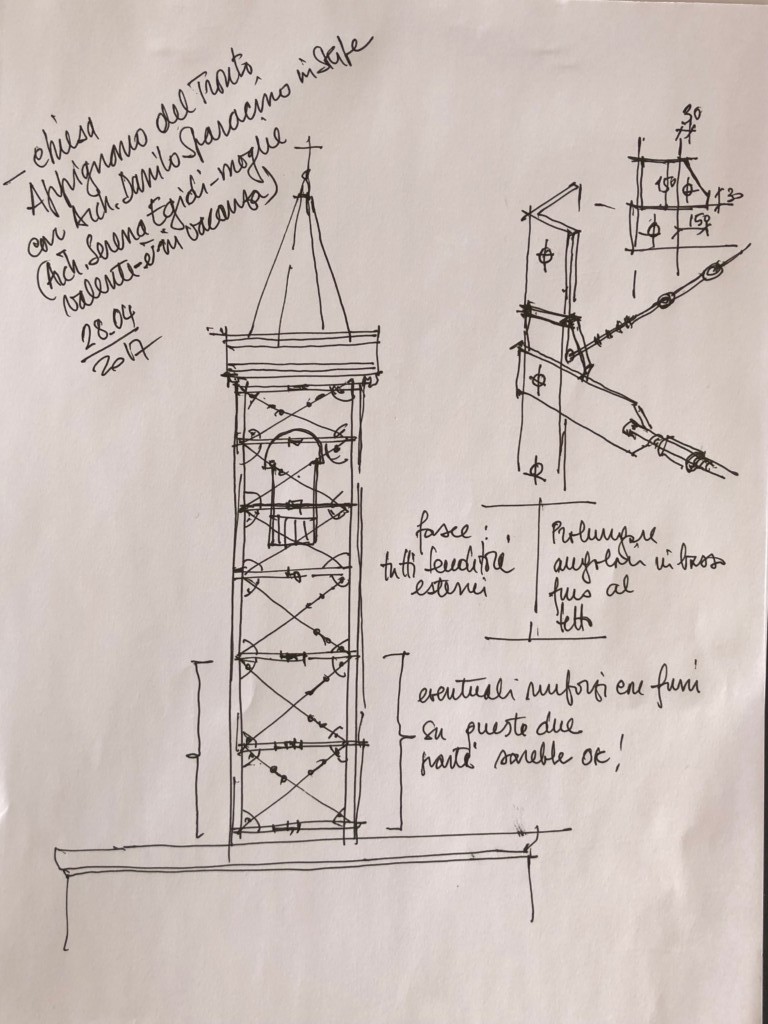 - chiesa
Appignano del Tronto
con Arch. Danilo Sparacino in Stife
(Arch. Serena Egidi - moglie
valente - è in vacanza)
28.04
2017
30
150
130
150
fasce :
tutti tenditori
esterni
Prolungare
angolari in basso
fino al
tetto
eventuali rinforzi con funi
su queste due
parti sarebbe OK!